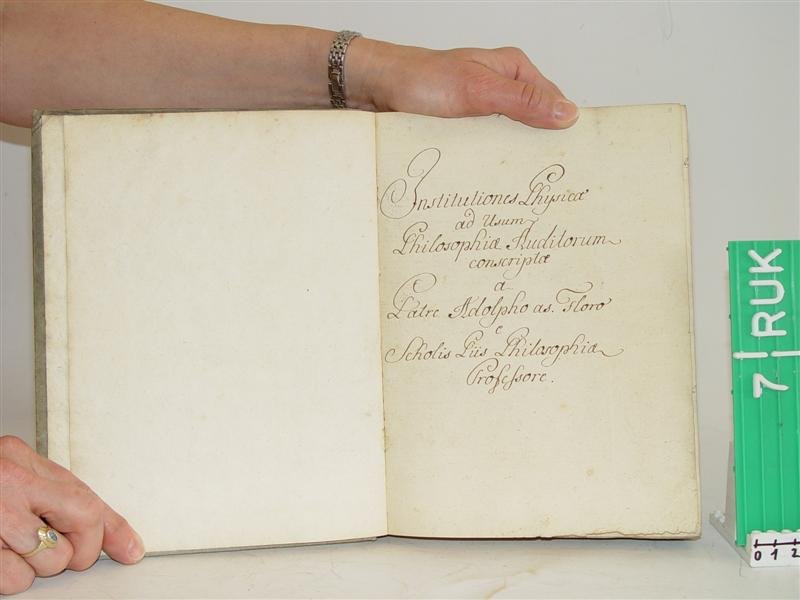 Institutiones Physicæ
ad Usum
Philosophiæ Auditorum
conscriptæ
a
Patre Adolpho as. Floro
e
Scholis Piis Philosophiæ
Professore.
7 RUK
0 1 2